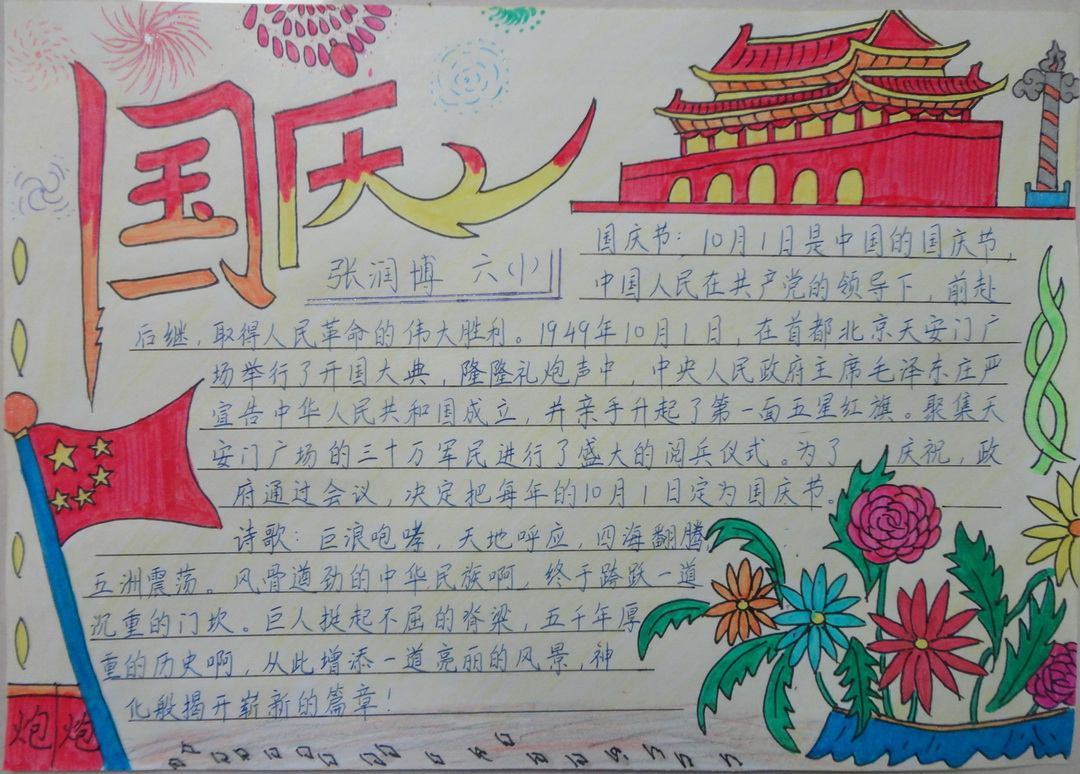 国庆
张润博 六(1)
国庆节：10月1日是中国的国庆节，
中国人民在共产党的领导下，前赴
后继，取得人民革命的伟大胜利。1949年10月1日，在首都北京天安门广
场举行了开国大典，隆隆礼炮声中，中央人民政府主席毛泽东庄严
宣告中华人民共和国成立，并亲手升起了第一面五星红旗。聚集天
安门广场的三十万军民进行了盛大的阅兵仪式。为了 庆祝，政
府通过会议，决定把每年的10月1日定为国庆节。
诗歌：巨浪咆哮，天地呼应，四海翻腾，
五洲震荡。风骨遒劲的中华民族啊，终于跨跃一道
沉重的门坎。巨人挺起不屈的脊梁，五千年厚
重的历史啊，从此增添一道亮丽的风景，神
化般揭开崭新的篇章！
炮 炮